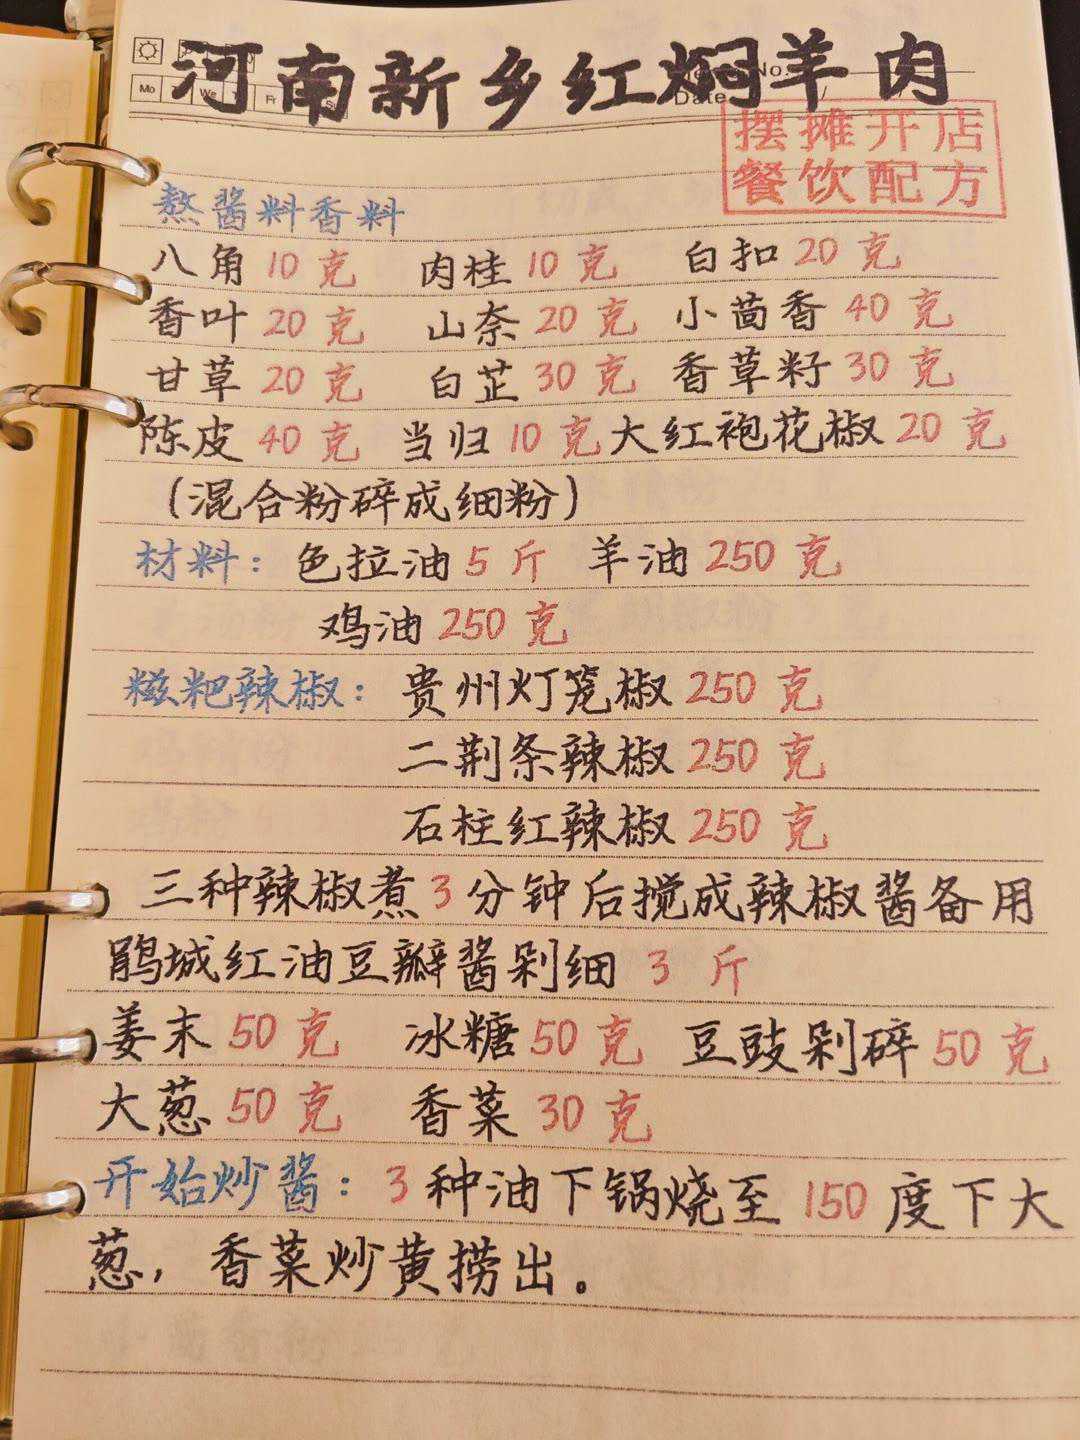 河南新乡红焖羊肉
No.
Date
Mo We Fr
摆摊开店
餐饮配方
熬酱料香料
八角 10 克 肉桂 10 克 白扣 20 克
香叶 20 克 山奈 20 克 小茴香 40 克
甘草 20 克 白芷 30 克 香草籽 30 克
陈皮 40 克 当归 10 克 大红袍花椒 20 克
(混合粉碎成细粉)
材料: 色拉油 5 斤 羊油 250 克
鸡油 250 克
糍粑辣椒: 贵州灯笼椒 250 克
二荆条辣椒 250 克
石柱红辣椒 250 克
三种辣椒煮 3 分钟后搅成辣椒酱备用
鹃城红油豆瓣酱剁细 3 斤
姜末 50 克 冰糖 50 克 豆豉剁碎 50 克
大葱 50 克 香菜 30 克
开始炒酱: 3 种油下锅烧至 150 度下大
葱, 香菜炒黄捞出。